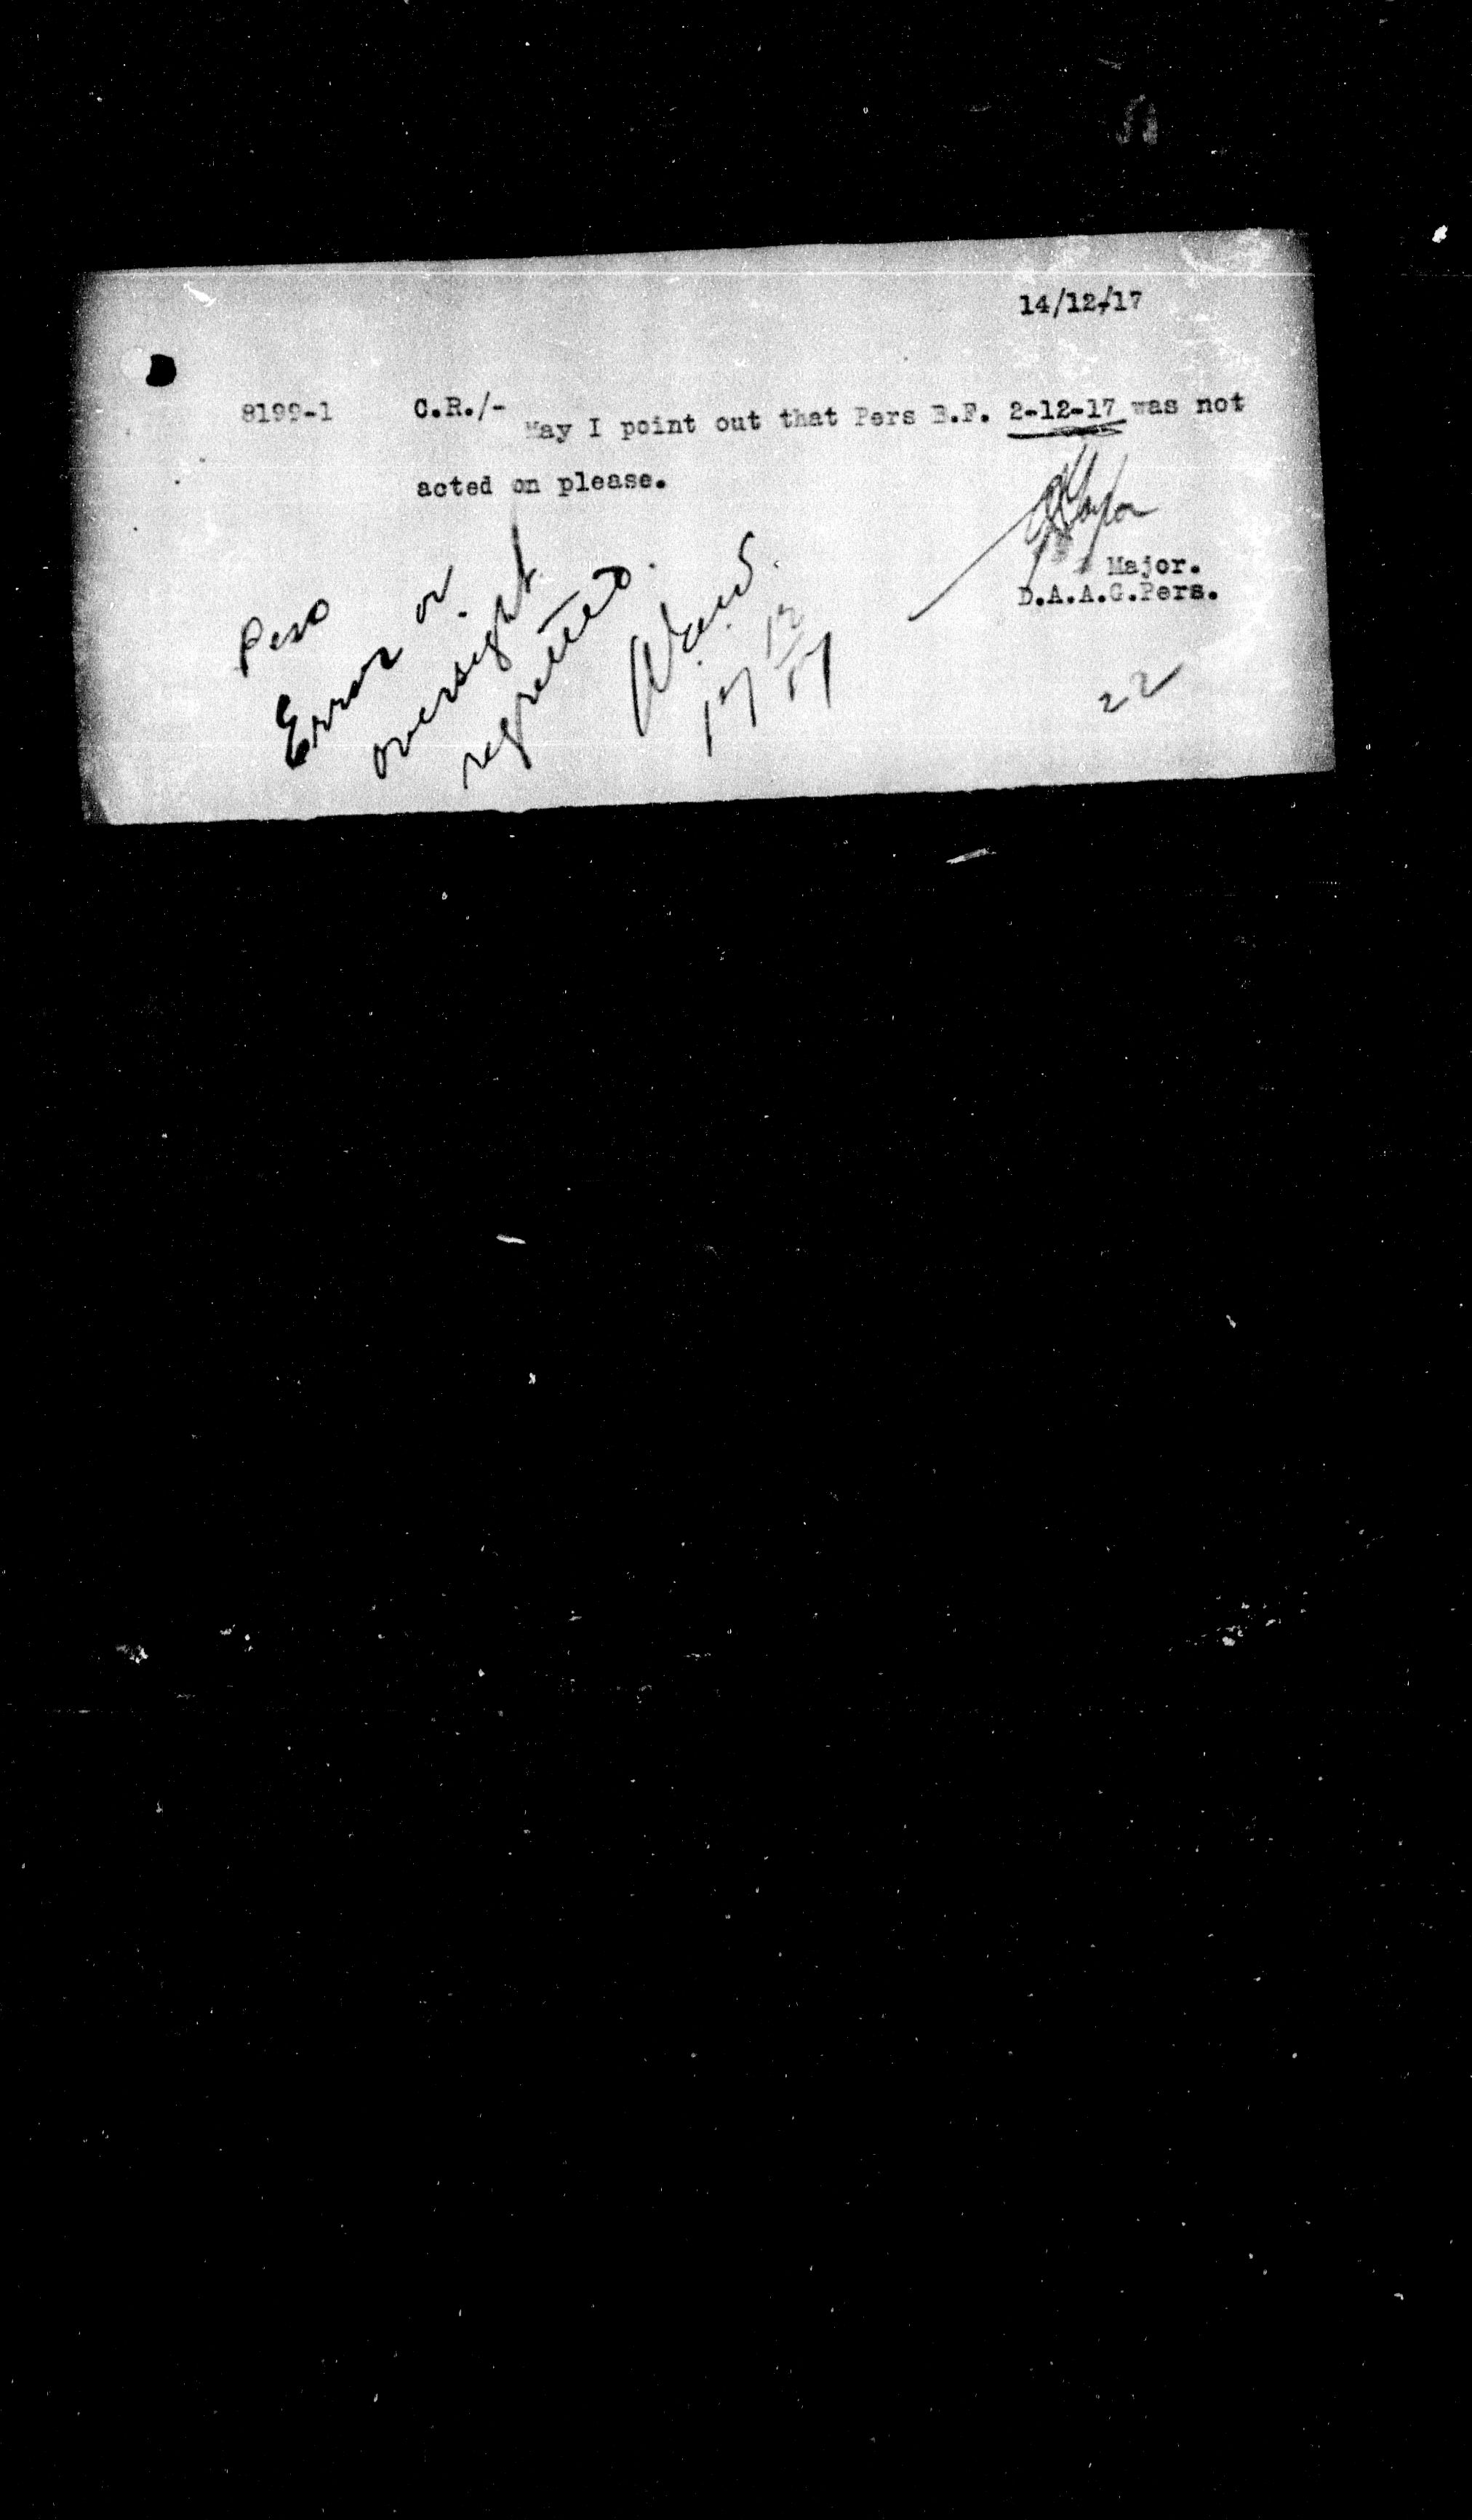 14/12/17
8199-1 C.R./-
May I point out that Pers B.F. 2-12-17 was not
acted on please.
Major.
D.A.A.G.Pers.
Pers
Error or
oversight
regretted.
17 12/17
22